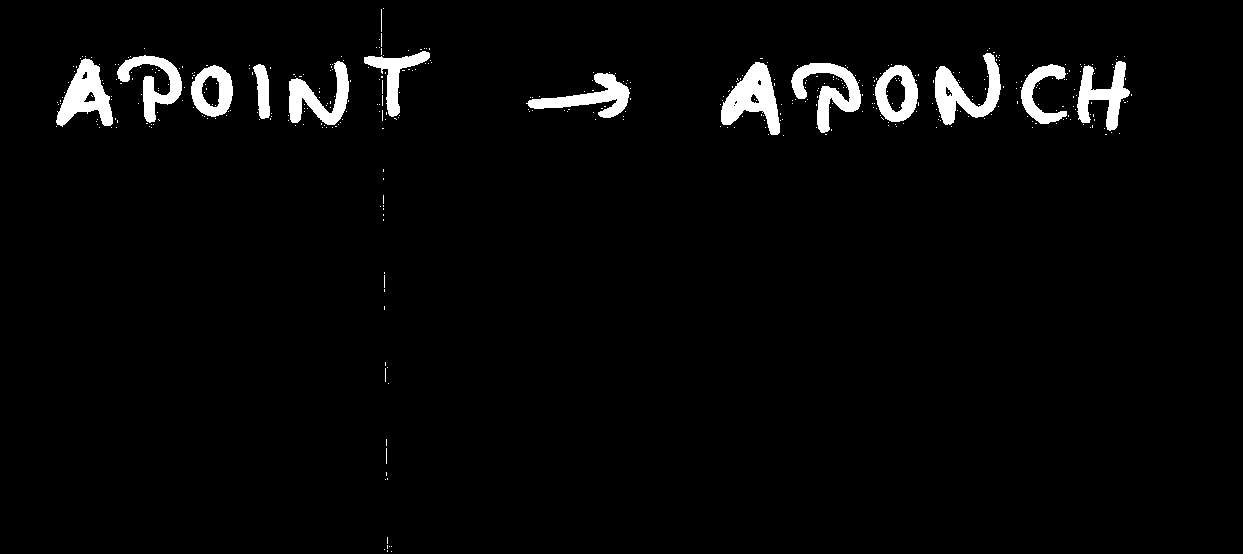 APOINT → APONCH